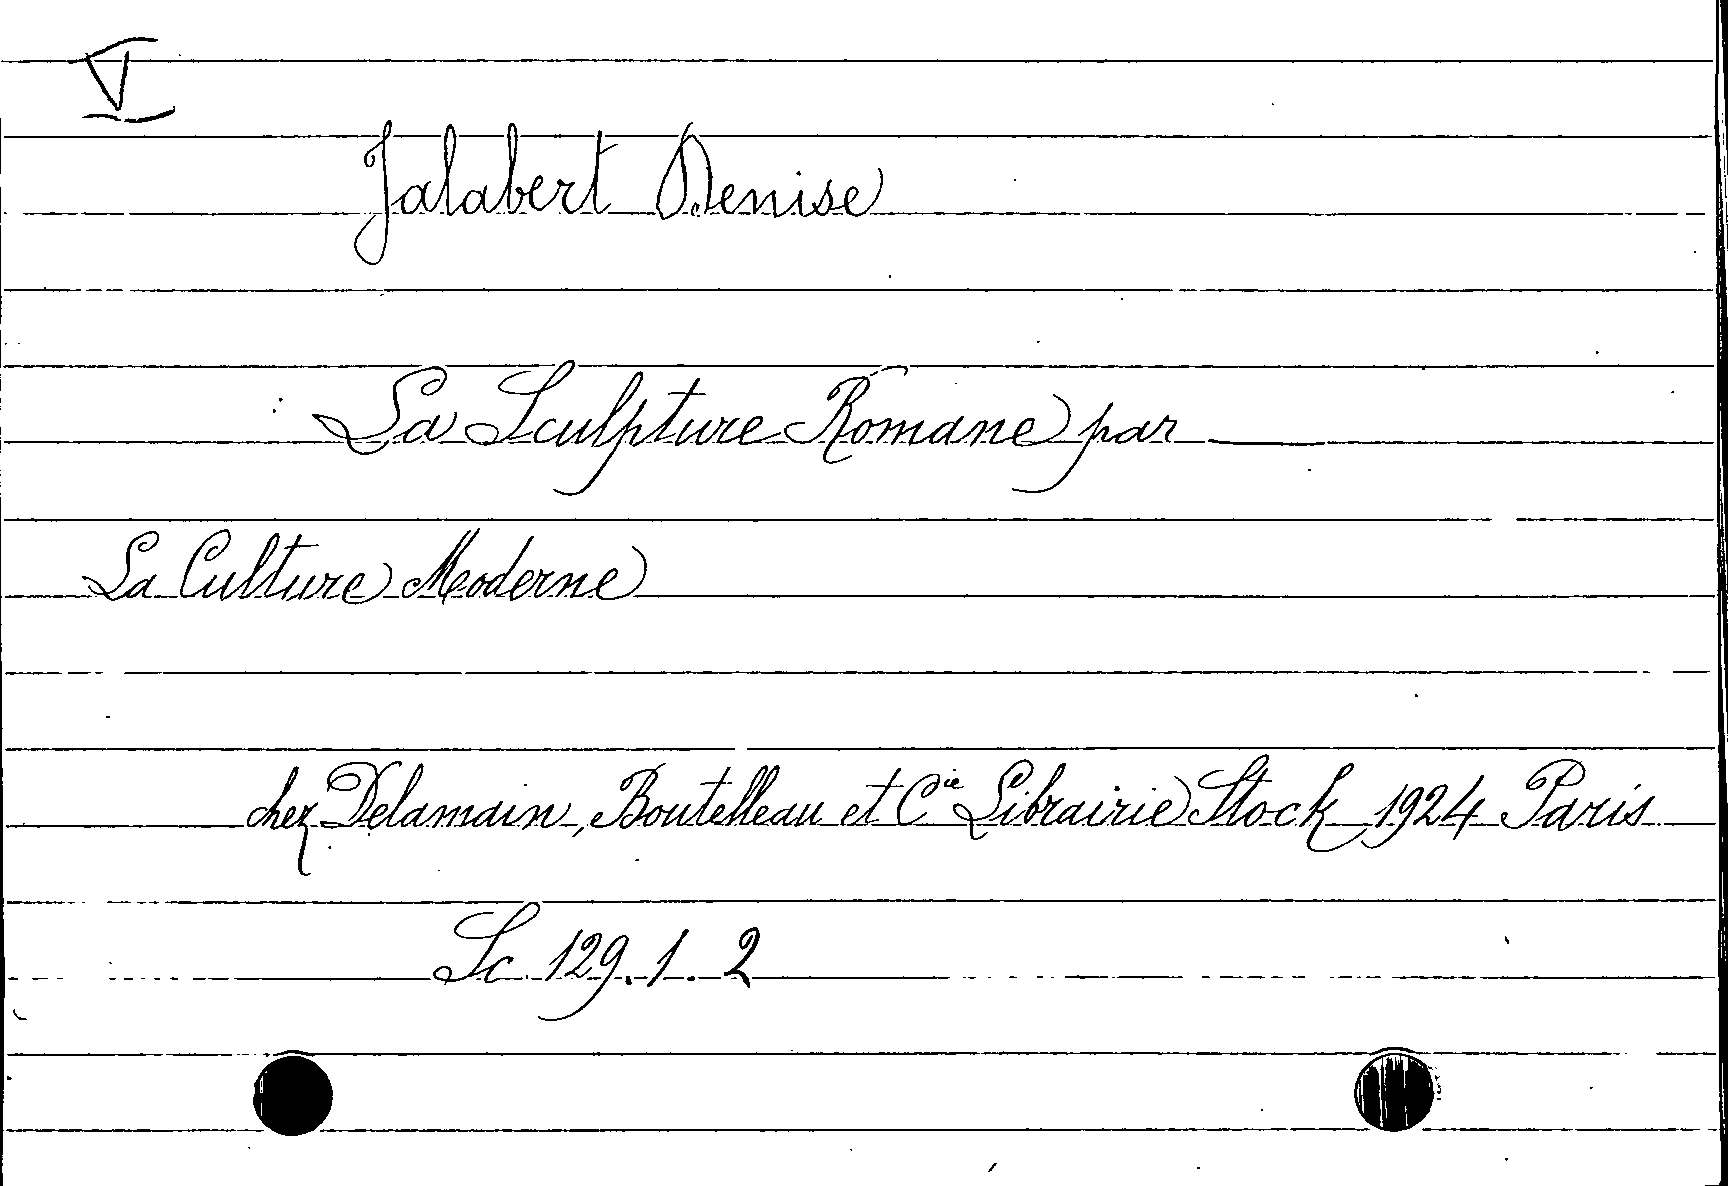 V
Jalabert Denise
La Sculpture Romane par ——
La Culture Moderne
chez Delamain, Boutelleau et Cie Librairie Stock 1924 Paris
Sc 129.1.2